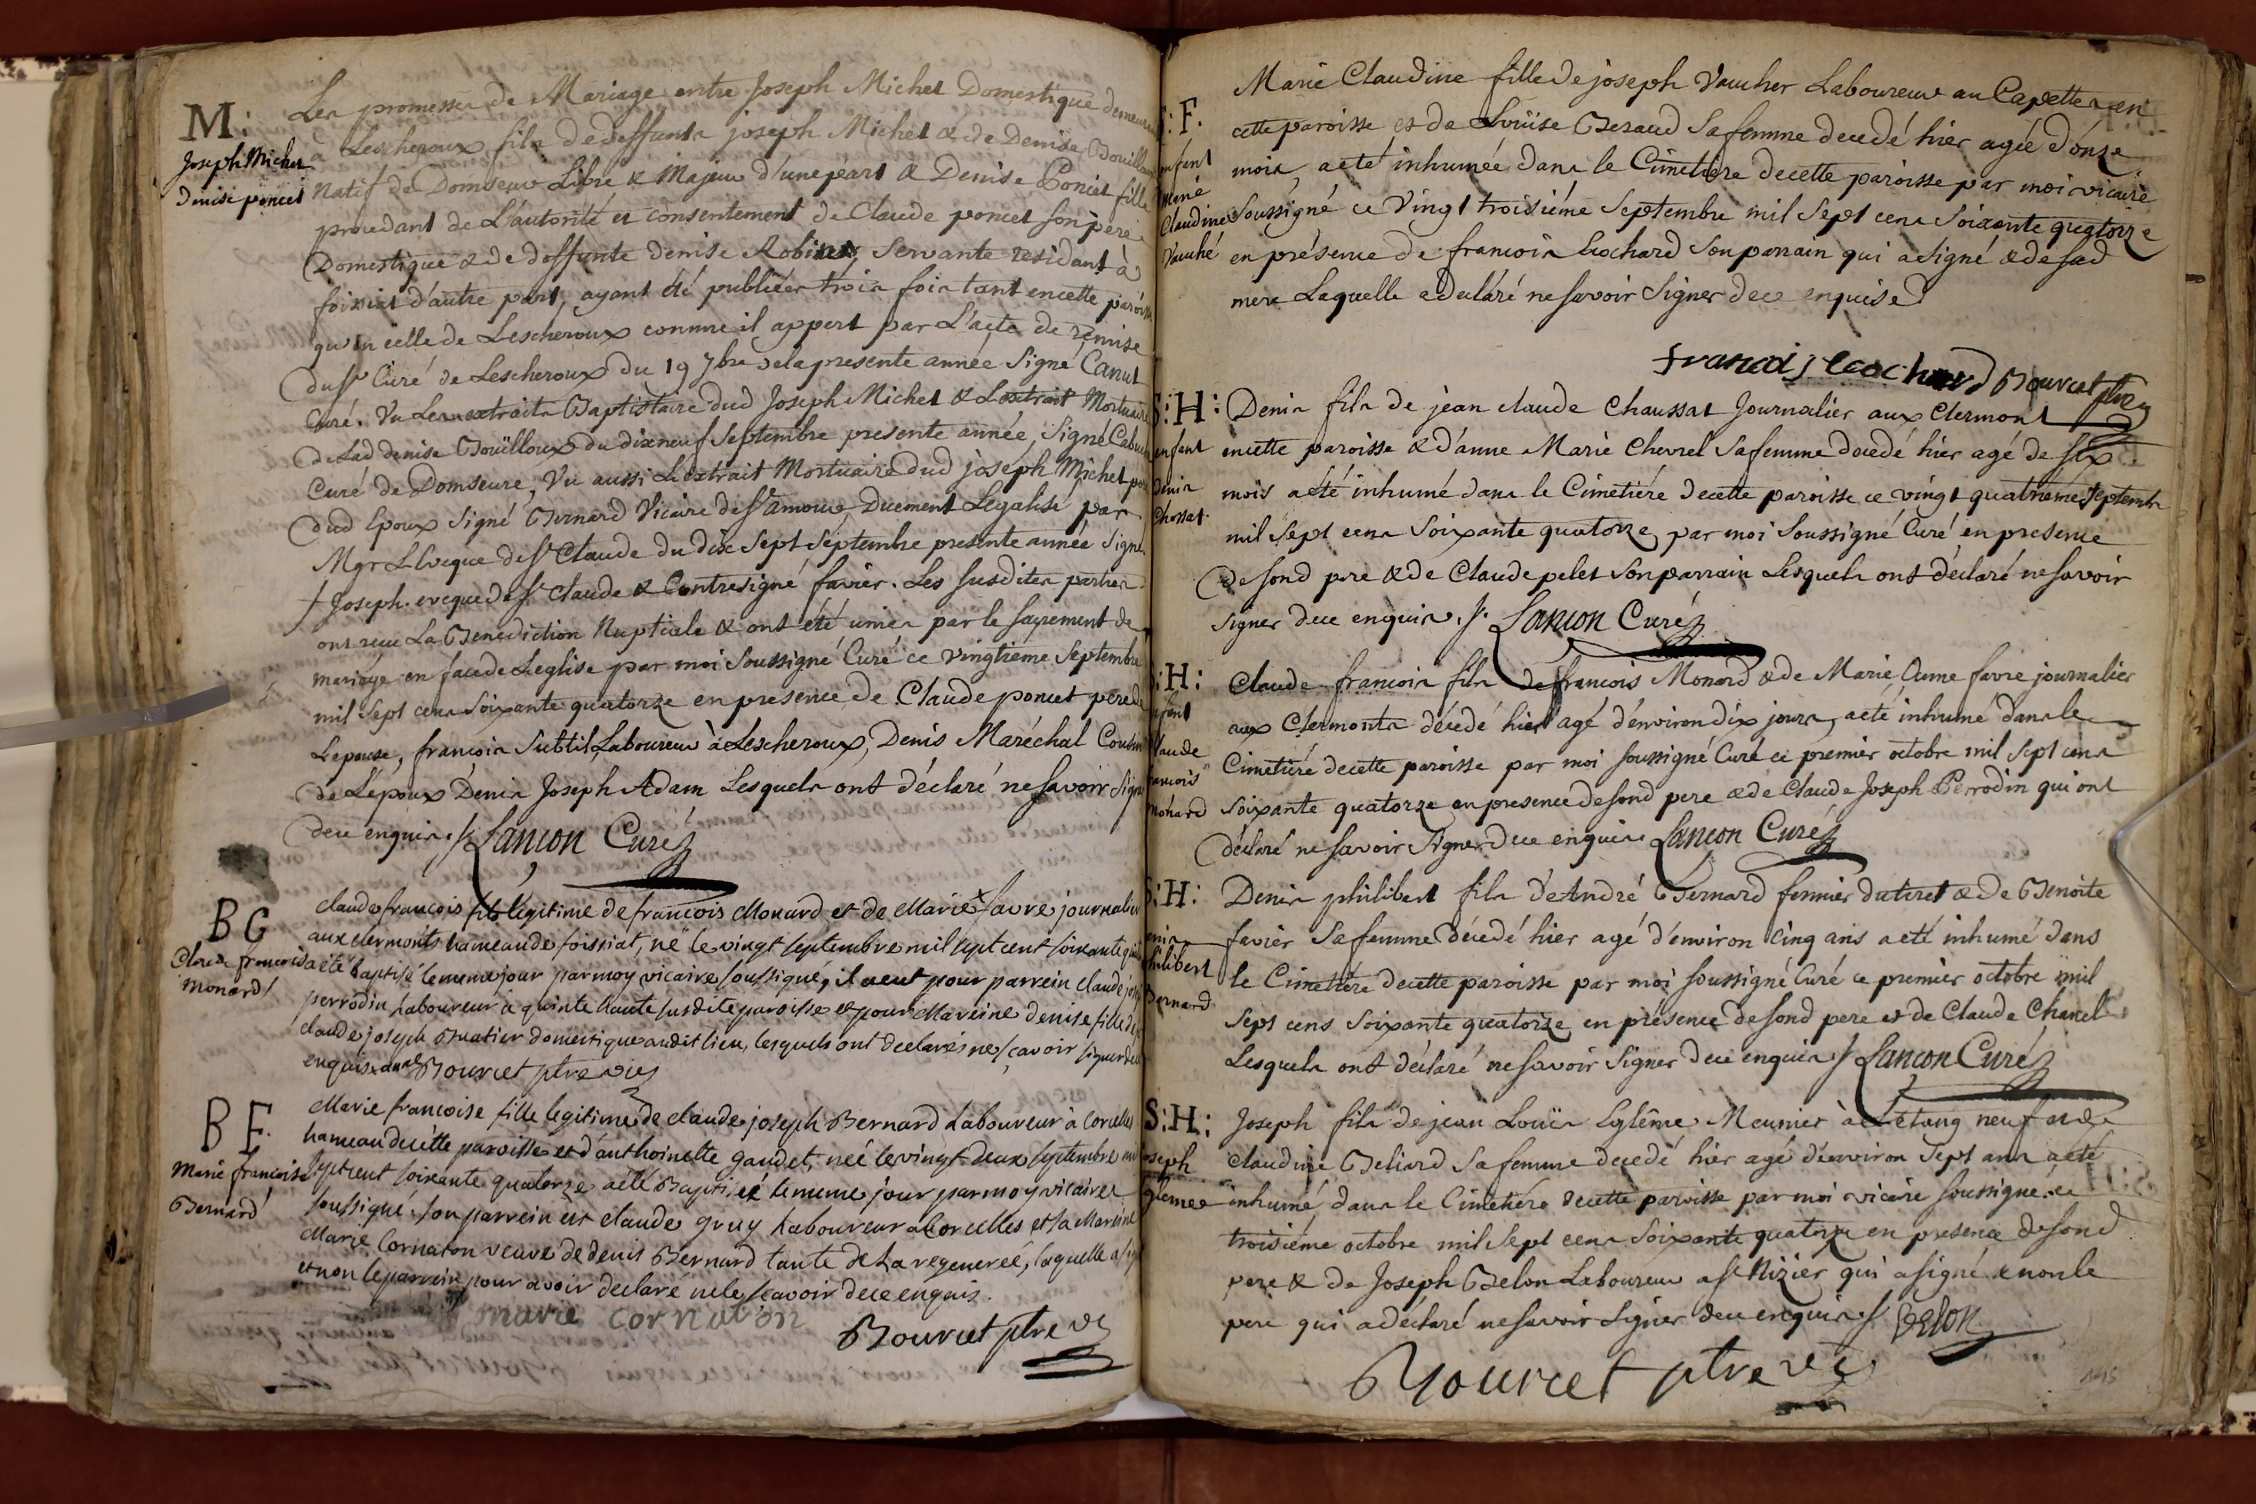 M:
Joseph Michet
denise poncet
Les promesses de Mariage entre Joseph Michet Domestique demeurant
à Lescheroux fils de deffunts joseph Michet & de Denise Bouilloux
Natif de Domseure Libre & Majeur d'une part & Denise Poncet fille
procedant de L'autorité et consentement de Claude poncet son père
Domestique & de deffunte denise Robin Servante residant à
foissiat d'autre part, ayant été publiées trois fois tant en cette paroisse
qu'en celle de Lescheroux comme il appert par L'acte de remise
du Sr Curé de Lescheroux du 19 7bre de la presente année Signé Canut
Curé. Vu Les extraits Baptistaire dud Joseph Michet & L'extrait Mortuaire
de Lad denise Boüilloux du dixneuf Septembre presente année, Signé
Curé de Domseure, Vu aussi L'extrait Mortuaire dud joseph Michet pere
dud Epoux Signé Bernard Vicaire de St amour, Duement Legalisé par
Mgr L'Eveque de St Claude du dix Sept Septembre presente année Signé
† Joseph. eveque de St Claude & Contresigné favier. Les susdites parties
ont reçu La Benediction Nuptiale & ont été unies par le sacrement de
mariage en face de Leglise par moi Soussigné Curé ce vingtieme Septembre
mil Sept cens Soixante quatorze en presence de Claude poncet pere de
Lepouse, françois Subtil Laboureur à Lescheroux, Denis Maréchal Cousin
de L'époux Denis Joseph Adam Lesquels ont déclaré ne savoir Signer
de ce enquis ./. Lancon Curé
B G
Claude francois
monard
Claude francois fils legitime de francois Monard et de Marie favre journalier
aux clermonts hameau de foissiat, né le vingt septembre mil sept cent soixante quatorze
a été baptisé le meme jour par moy vicaire soussigné, il a eut pour parrein claude joseph
perrodin Laboureur à quinte haute susdite paroisse et pour Mareine denise fille de
claude joseph Buatier domestique audit lieu, lesquels ont declarés ne sçavoir signer de ce
enquis Bourcet ptre vic
B F.
Marie francoise
Bernard
Marie francoise fille legitime de claude joseph Bernard Laboureur à Corcelles
hameau de cette paroisse et d'anthoinette gaudet, née le vingt deux septembre mil
sept cent soixante quatorze a été Baptisée le meme jour par moy vicaire
soussigné. son parrein est claude gruy Laboureur à Corcelles et sa Mareine
Marie Cornaton veuve de denis Bernard tante de La regenerée, laquelle a signé
et non le parrein pour avoir declaré ne le scavoir de ce enquis.
marie cornaton
Bourcet ptre vic
S: F.
enfant
Marie
Claudine
Vauché
Marie Claudine fille de joseph Vaucher Laboureur au Capettes en
cette paroisse et de Loüise Beraud Sa femme decedé hier agée d'onze
mois, a eté inhumée dans le Cimetiere de cette paroisse par moi vicaire
Soussigné ce Vingt troisiéme Septembre mil Sept cens Soixante quatorze
en présence de francois Cochard Son parrain qui a signé & de sad
mere Laquelle a declaré ne savoir Signer de ce enquise
francois cochard Bourcet ptre
S: H:
enfant
denis
Chossat.
Denis fils de jean claude Chaussat Journalier aux Clermont
en cette paroisse & d'anne Marie Chevrel Sa femme decedé hier agé de six
mois a été inhumé dans le Cimetiére de cette paroisse ce vingt quatrieme Septembre
mil Sept cens Soixante quatorze par moi Soussigné Curé en presence
de sond pere & de Claude pelet Son parrain Lesquels ont déclaré ne savoir
signer de ce enquis ./. Lancon Curé
S: H:
enfant
Claude
francois
Monard
Claude francois fils de francois Monard & de Marie Anne favre journalier
aux Clermonts décedé hier agé d'environ dix jours, a eté inhumé dans le
Cimetiére de cette paroisse par moi soussigné Curé ce premier octobre mil Sept cens
Soixante quatorze en presence de sond pere & de Claude Joseph Perrodin qui ont
déclaré ne savoir Signer de ce enquis Lancon Curé
S: H:
Denis
philibert
Bernard.
Denis philibert fils d'André Bernard fermier du tiret & de Benoite
favier Sa femme décedé hier agé d'environ cinq ans a eté inhumé dans
le Cimetiére de cette paroisse par moi soussigné Curé ce premier octobre mil
Sept cens Soixante quatorze en présence de sond pere et de Claude Chanel
Lesquels ont déclaré ne savoir Signer de ce enquis ./. Lancon Curé
S: H:
joseph
Joseph fils de jean Loüis Eglême Meunier à L'etang neuf & de
Claudine Beliard Sa femme decedé hier agé d'environ Sept ans a eté
inhumé dans le Cimetiére de cette paroisse par moi vicaire soussigné ce
troisiéme octobre mil Sept cens Soixante quatorze en presence de sond
pere & de Joseph Belon Laboureur a St Nizier qui a signé & non le
pere qui a déclaré ne savoir Signer de ce enquis ./. Belon
Bourcet ptre vic